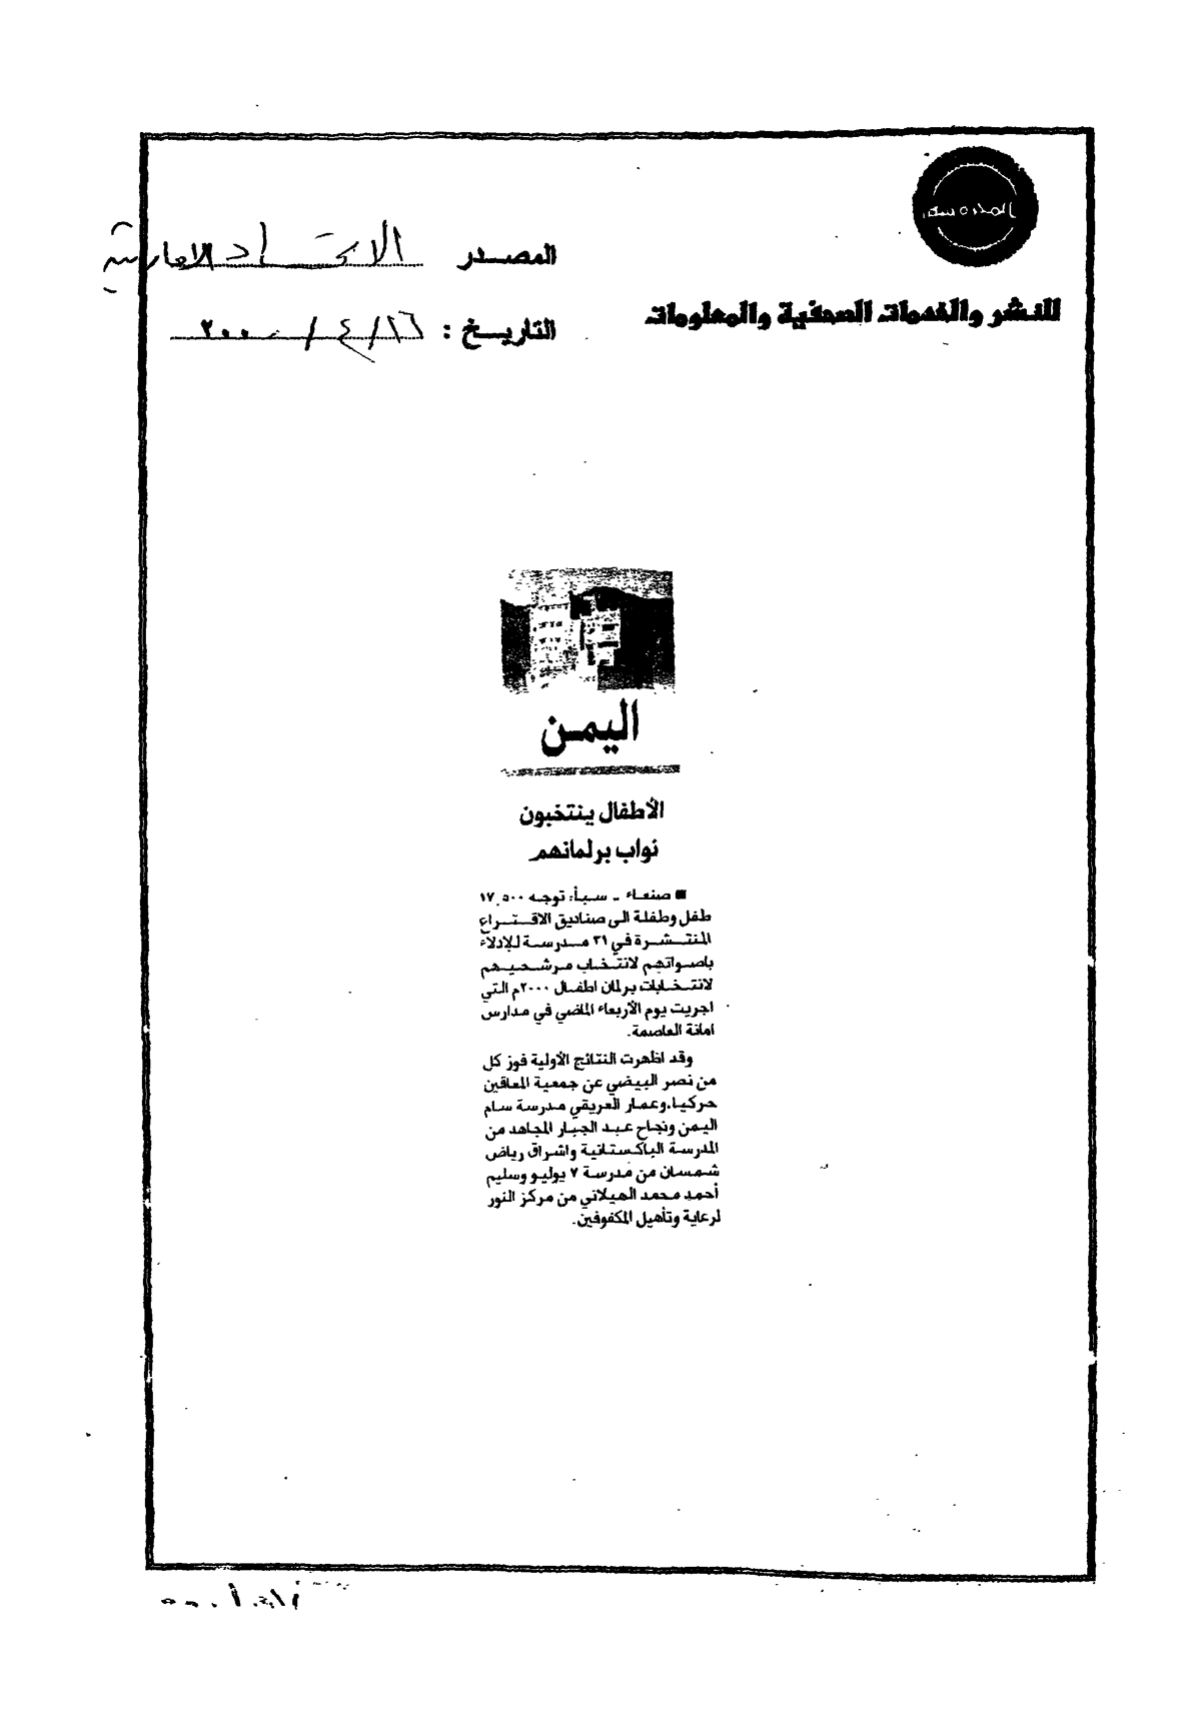 للنشر والخدمات الصحفية والمعلومات
المصدر الاتحاد الاماراتية
التاريخ : ١٦/٤/٢٠٠٠
اليمن
الأطفال ينتخبون
نواب برلمانهم
■ صنعاء - سبأ: توجه ١٧,٥٠٠
طفل وطفلة الى صناديق الاقتراع
المنتشرة في ٣١ مدرسة للإدلاء
باصواتهم لانتخاب مرشحيهم
لانتخابات برلمان اطفال ٢٠٠٠م التي
اجريت يوم الأربعاء الماضي في مدارس
امانة العاصمة.
وقد اظهرت النتائج الأولية فوز كل
من نصر البيضي عن جمعية المعاقين
حركيا، وعمار العريقي مدرسة سام
اليمن ونجاح عبد الجبار المجاهد من
المدرسة الباكستانية واشراق رياض
شمسان من مدرسة ٧ يوليو وسليم
أحمد محمد الهيلاني من مركز النور
لرعاية وتأهيل المكفوفين.